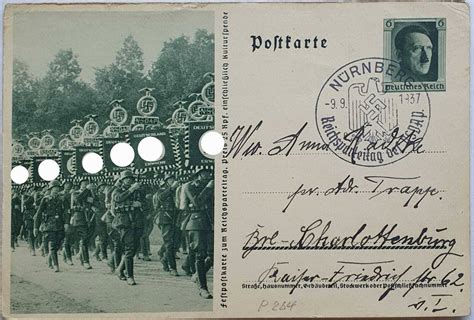 Postkarte
6
6
Deutsches Reich
NÜRNBERG
-9.9.
1937
Reichsparteitag der NSDAP
Festpostkarte zum Reichsparteitag. Preis 25 Rpf. einschließlich Kulturspende
Anna
pr. Adr. Trappe
Bln-Charlottenburg
Kaiser-Friedrich Str 62
Straße, Hausnummer, Gebäudeteil, Stockwerk oder Postschließfachnummer
P 264